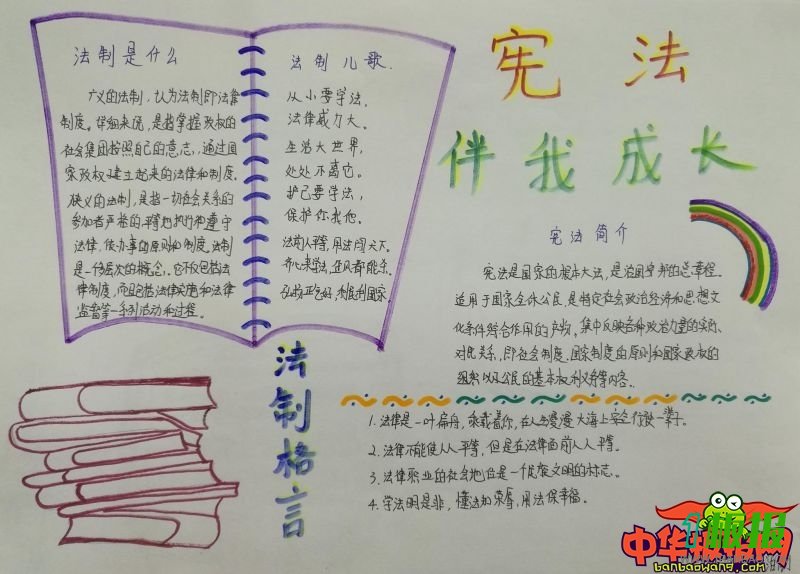 宪法
伴我成长
法制是什么
广义的法制，认为法制即法律
制度。详细来说，是指掌握政权的
社会集团按照自己的意志，通过国
家政权建立起来的法律和制度。
狭义的法制，是指一切社会关系的
参加者严格的平等地执行和遵守
法律，依办事的原则和制度。法制
是一个多层次的概念，它不仅包括法
律制度，而且包括法律实施和法律
监督等一系列活动和过程。
法制儿歌.
从小要学法，
法律威力大。
生活大世界，
处处不离它。
护己要学法，
保护你我他。
法前人平等，用法闯天下。
齐心来学法，正风都能杀。
利民利国家
宪法简介
宪法是国家的根本大法，是治国安邦的总章程，
适用于国家全体公民，是特定社会政治经济和思想文
化条件综合作用的产物，集中反映各种政治力量的实际
对比关系，即社会制度、国家制度的原则和国家政权的
组织以及公民的基本权利义务等内容。
法制格言
1.法律是一叶扁舟，乘载着你，在人生漫漫大海上安全行驶一辈子。
2.法律不能使人人平等，但是在法律面前人人平等。
3.法律职业的社会地位是一个民族文明的标志。
4.学法明是非，懂法知荣辱，用法保幸福。
中华板报网
banbaowang.com